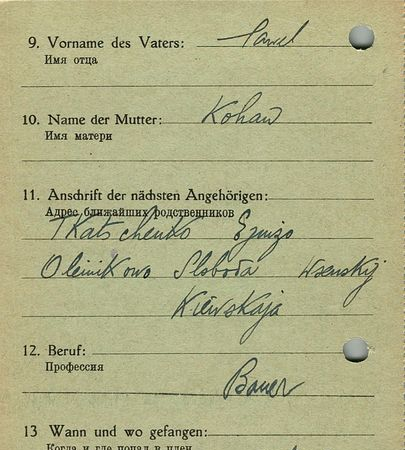 9. Vorname des Vaters: Pawel
Имя отца
10. Name der Mutter: Kohan
Имя матери
11. Anschrift der nächsten Angehörigen:
Адрес ближайших родственников
Tkatschenko
Oleinikowo Sloboda
Kiewskaja
12. Beruf:
Профессия
Bauer
13 Wann und wo gefangen:
Когда и где попал в плен